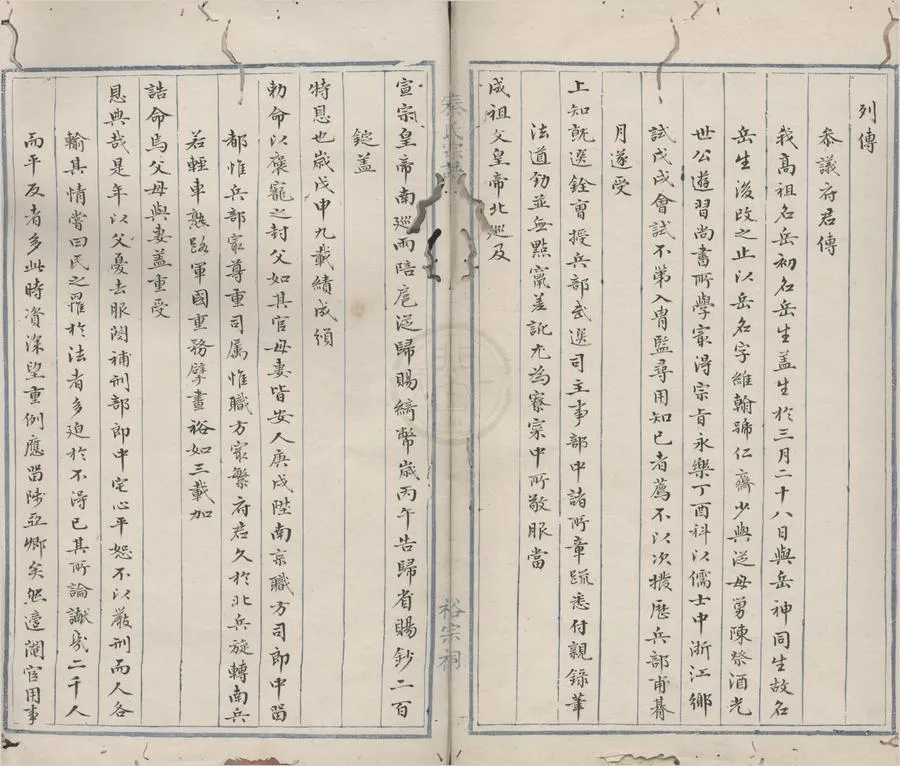 列傳
叅議府君傳
我高祖名岳初名岳生盖生於三月二十八日與岳神同生故名
岳生後改之止以岳名字維翰號仁齋少與從母舅陳祭酒光
世公遊習尚書所學㝡得宗旨永樂丁酉科以儒士中浙江鄉
試戊戌會試不第入胄監尋用知已者薦不以次撥歴兵部甫朞
月遂受
上知就選銓曹授兵部武選司主事部中諸所章䟽悉付親錄筆
法道勁並無點竄差訛尤為寮寀中所敬服當
成祖文皇帝北廵及
宣宗皇帝南廵両陪扈從歸賜綺幣歲丙午告歸省賜鈔二百
錠盖
特恩也歲戊申九載績成領
勅命以褒寵之封父如其官母妻皆安人庚戌陞南京職方司郎中留
都惟兵部㝡尊重司属惟職方㝡繁府君久於北兵旋轉南兵
若輕車熟路軍國重務擘畫裕如三載加
誥命焉父母與妻盖重受
恩典哉是年以父憂去服闋補刑部郎中宅心平恕不以嚴刑而人各
輸其情嘗曰民之罹於法者多迫於不得已其所論讞㡬二千人
而平反者多此時資深望重例應留陟亞卿矣然遭閹官用事
秦氏宗譜
裕宗祠